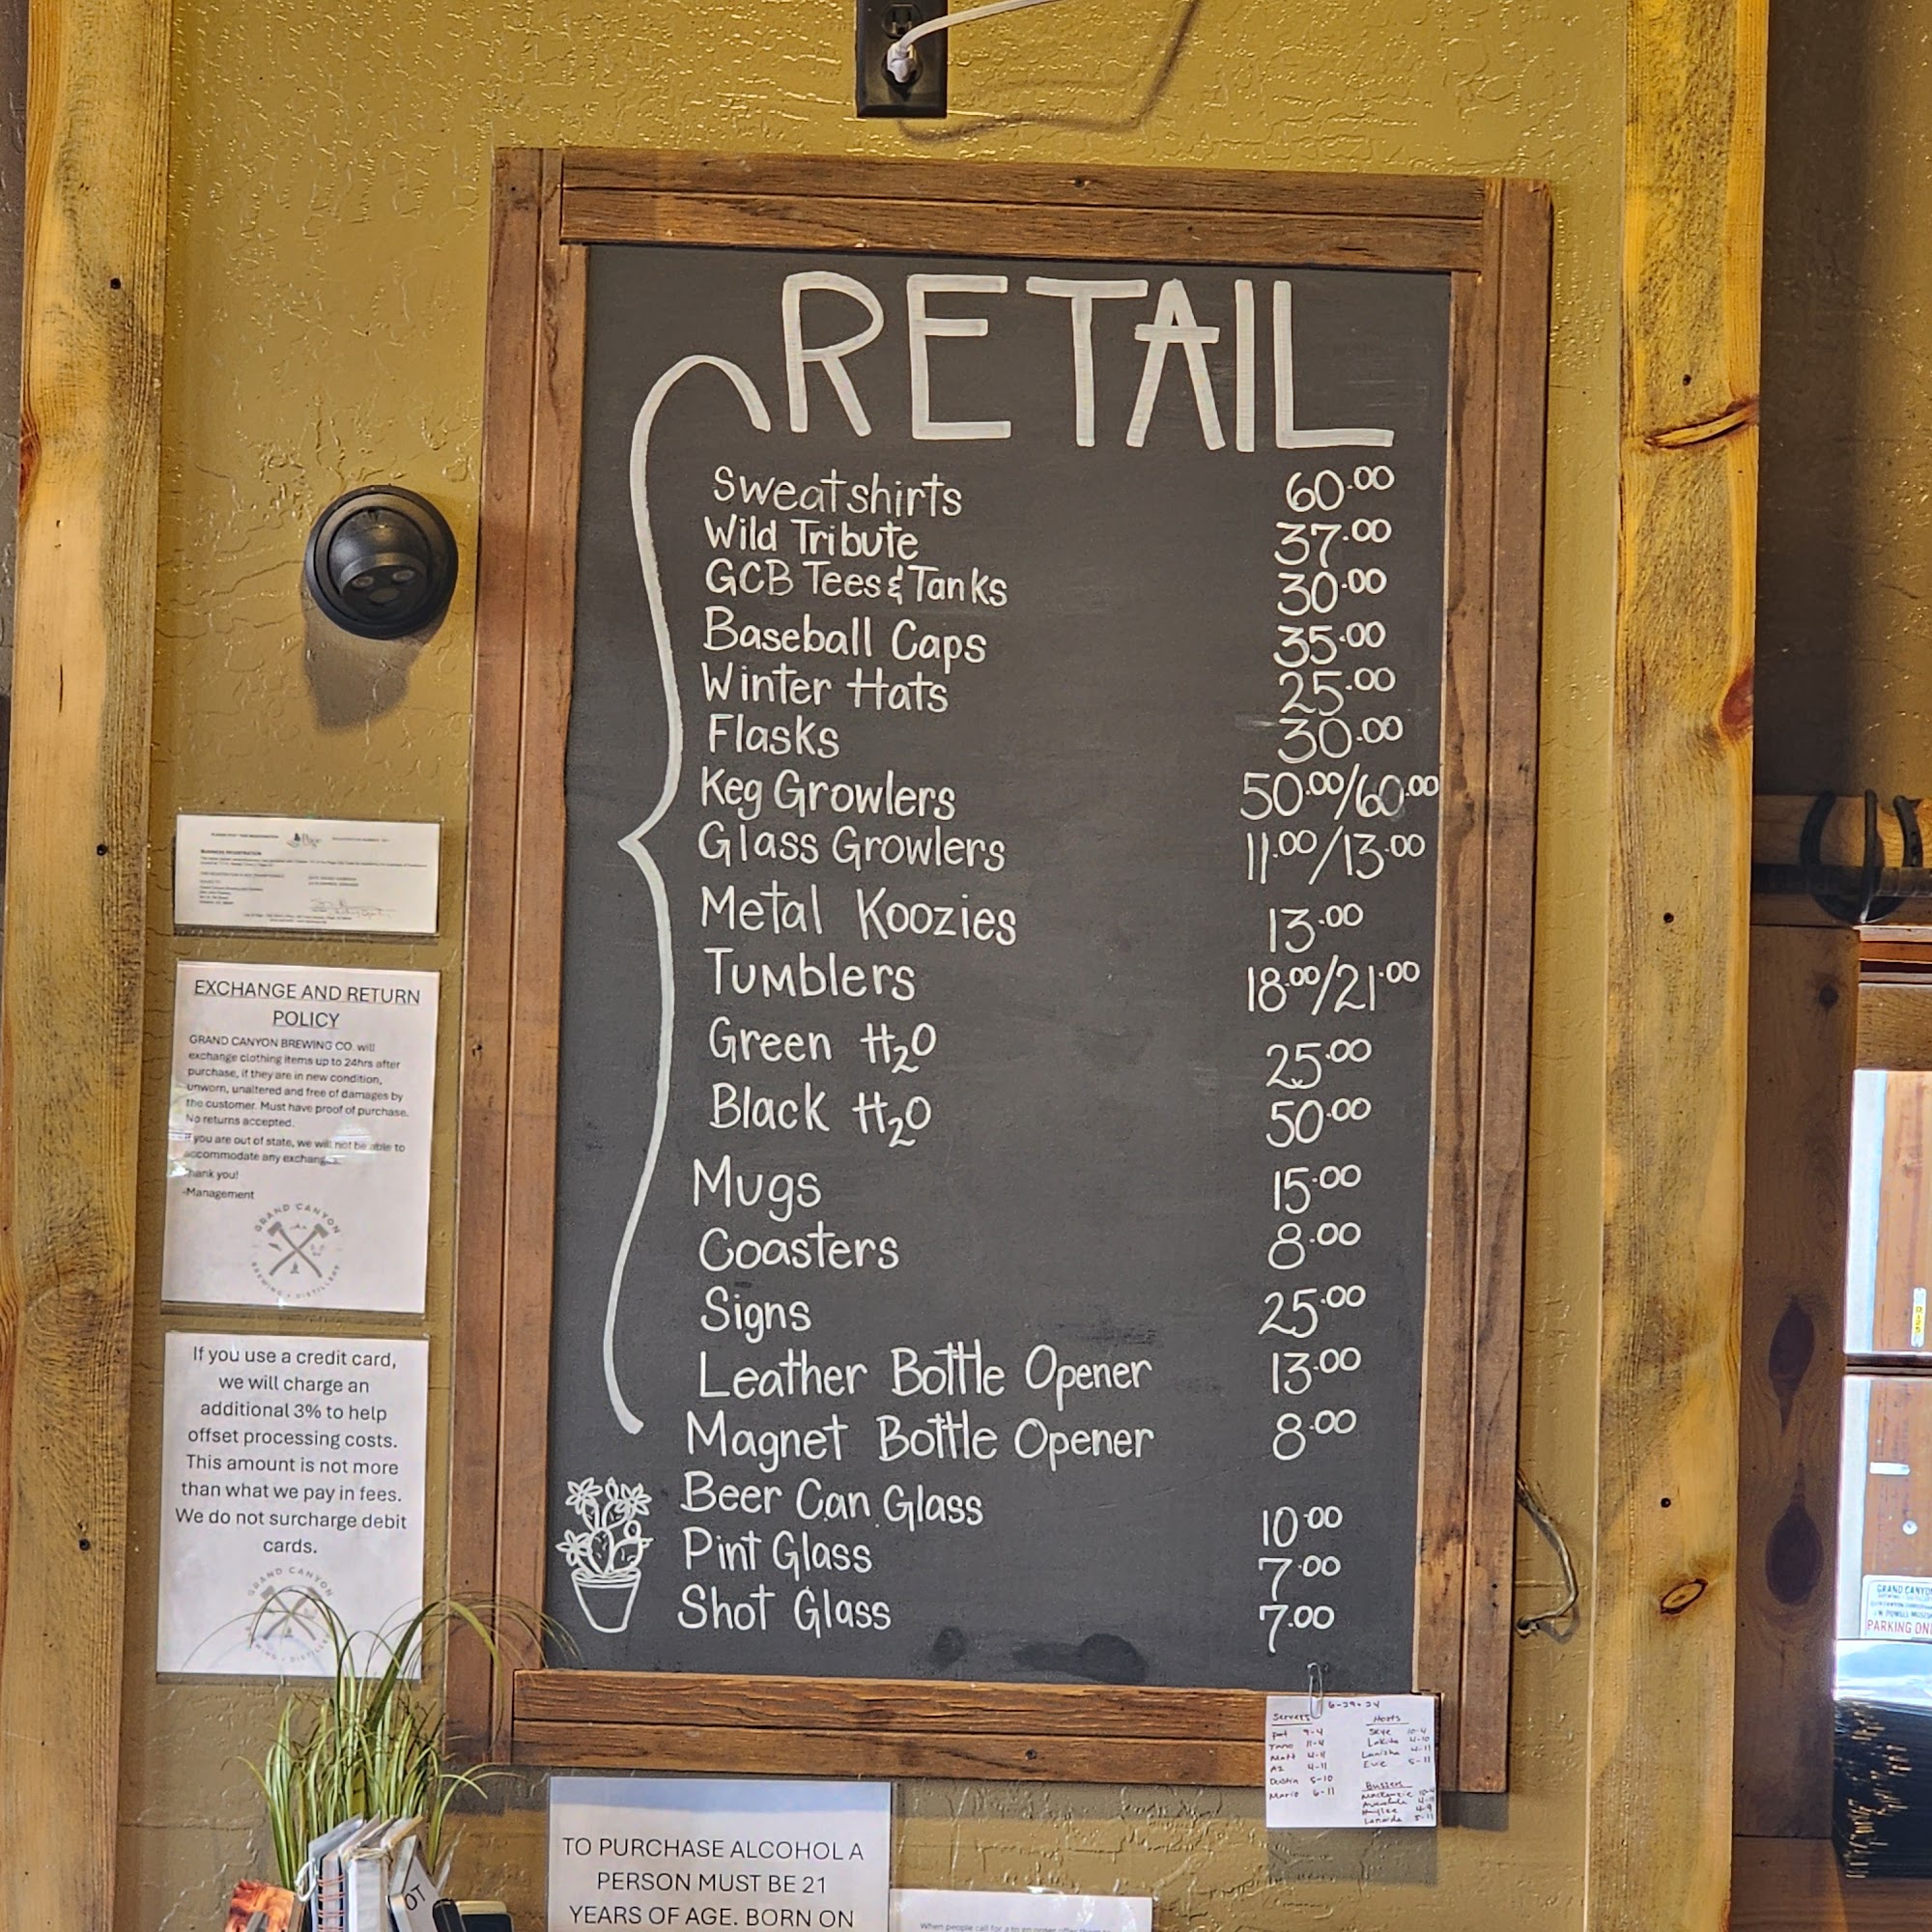 RETAIL
Sweatshirts 60.00
Wild Tribute 37.00
GCB Tees & Tanks 30.00
Baseball Caps 35.00
Winter Hats 25.00
Flasks 30.00
Keg Growlers 50.00/60.00
Glass Growlers 11.00/13.00
Metal Koozies 13.00
Tumblers 18.00/21.00
Green H2O 25.00
Black H2O 50.00
Mugs 15.00
Coasters 8.00
Signs 25.00
Leather Bottle Opener 13.00
Magnet Bottle Opener 8.00
Beer Can Glass 10.00
Pint Glass 7.00
Shot Glass 7.00
Page
BUSINESS REGISTRATION
EXCHANGE AND RETURN
POLICY
GRAND CANYON BREWING CO. will
exchange clothing items up to 24hrs after
purchase, if they are in new condition,
unworn, unaltered and free of damages by
the customer. Must have proof of purchase.
No returns accepted.
If you are out of state, we will not be able to
accommodate any exchanges.
Thank you!
-Management
GRAND CANYON
BREWING + DISTILLERY
If you use a credit card,
we will charge an
additional 3% to help
offset processing costs.
This amount is not more
than what we pay in fees.
We do not surcharge debit
cards.
GRAND CANYON
6-29-24
Servers
9-4
11-4
Matt 4-11
AZ 4-11
Dustin 5-10
Mario 6-11
Hosts
Skye 10-4
Lakita 4-10
Lanisha 4-11
Evie 5-11
Bussers
Mackenzie
Haylee 4-9
5-11
TO PURCHASE ALCOHOL A
PERSON MUST BE 21
YEARS OF AGE. BORN ON
When people call for a to go order offer them
GRAND CANYON
PARKING ON